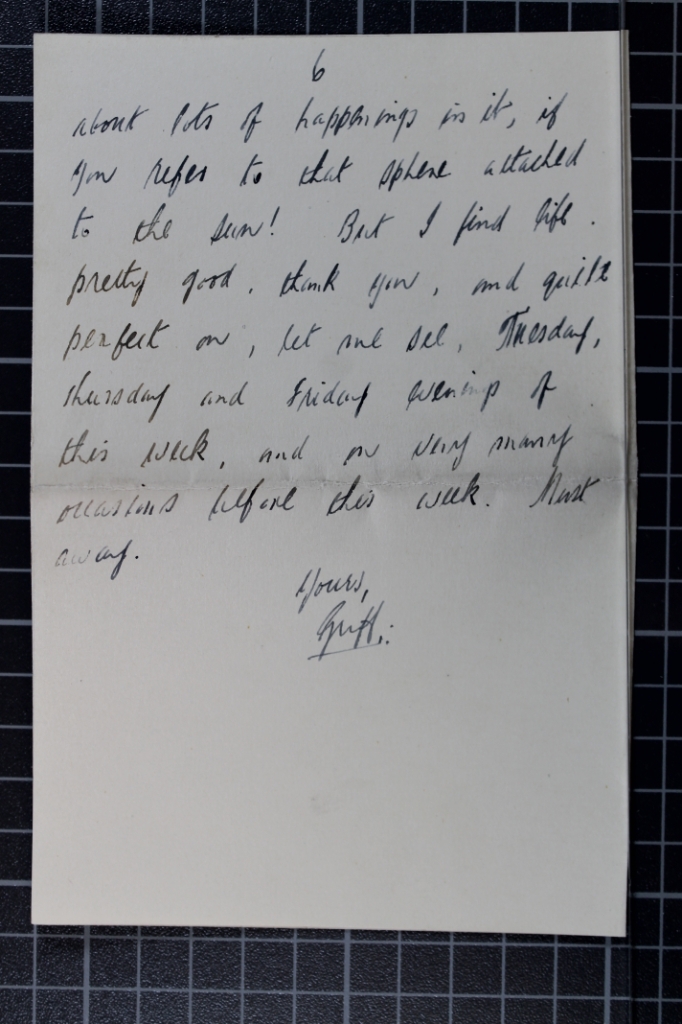 6
about lots of happenings in it, if
you refer to that sphere attached
to the sun! But I find life
pretty good, thank you, and quite
perfect on, let me see, Tuesday,
thursday and Friday evenings of
this week, and on very many
occasions before this week. Must
away.
Yours,
Griff.